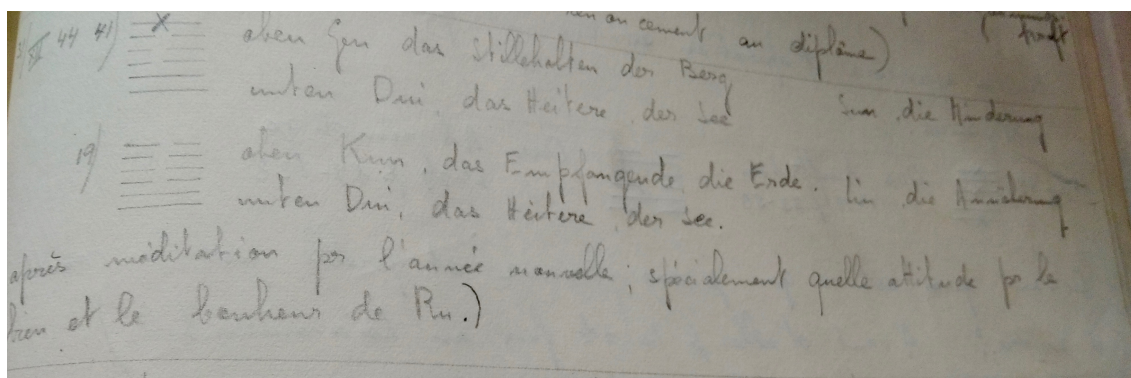 cement au diplôme)
44 41) oben Gen das Stillehalten der Berg
unten Dui, das Heitere, der See Sun, die Minderung
19) oben Kun, das Empfangende die Erde. Lin, die Annäherung
unten Dui, das Heitere, der See.
après méditation pr l'année nouvelle; spécialement quelle attitude pr le
bien et le bonheur de Ru.)